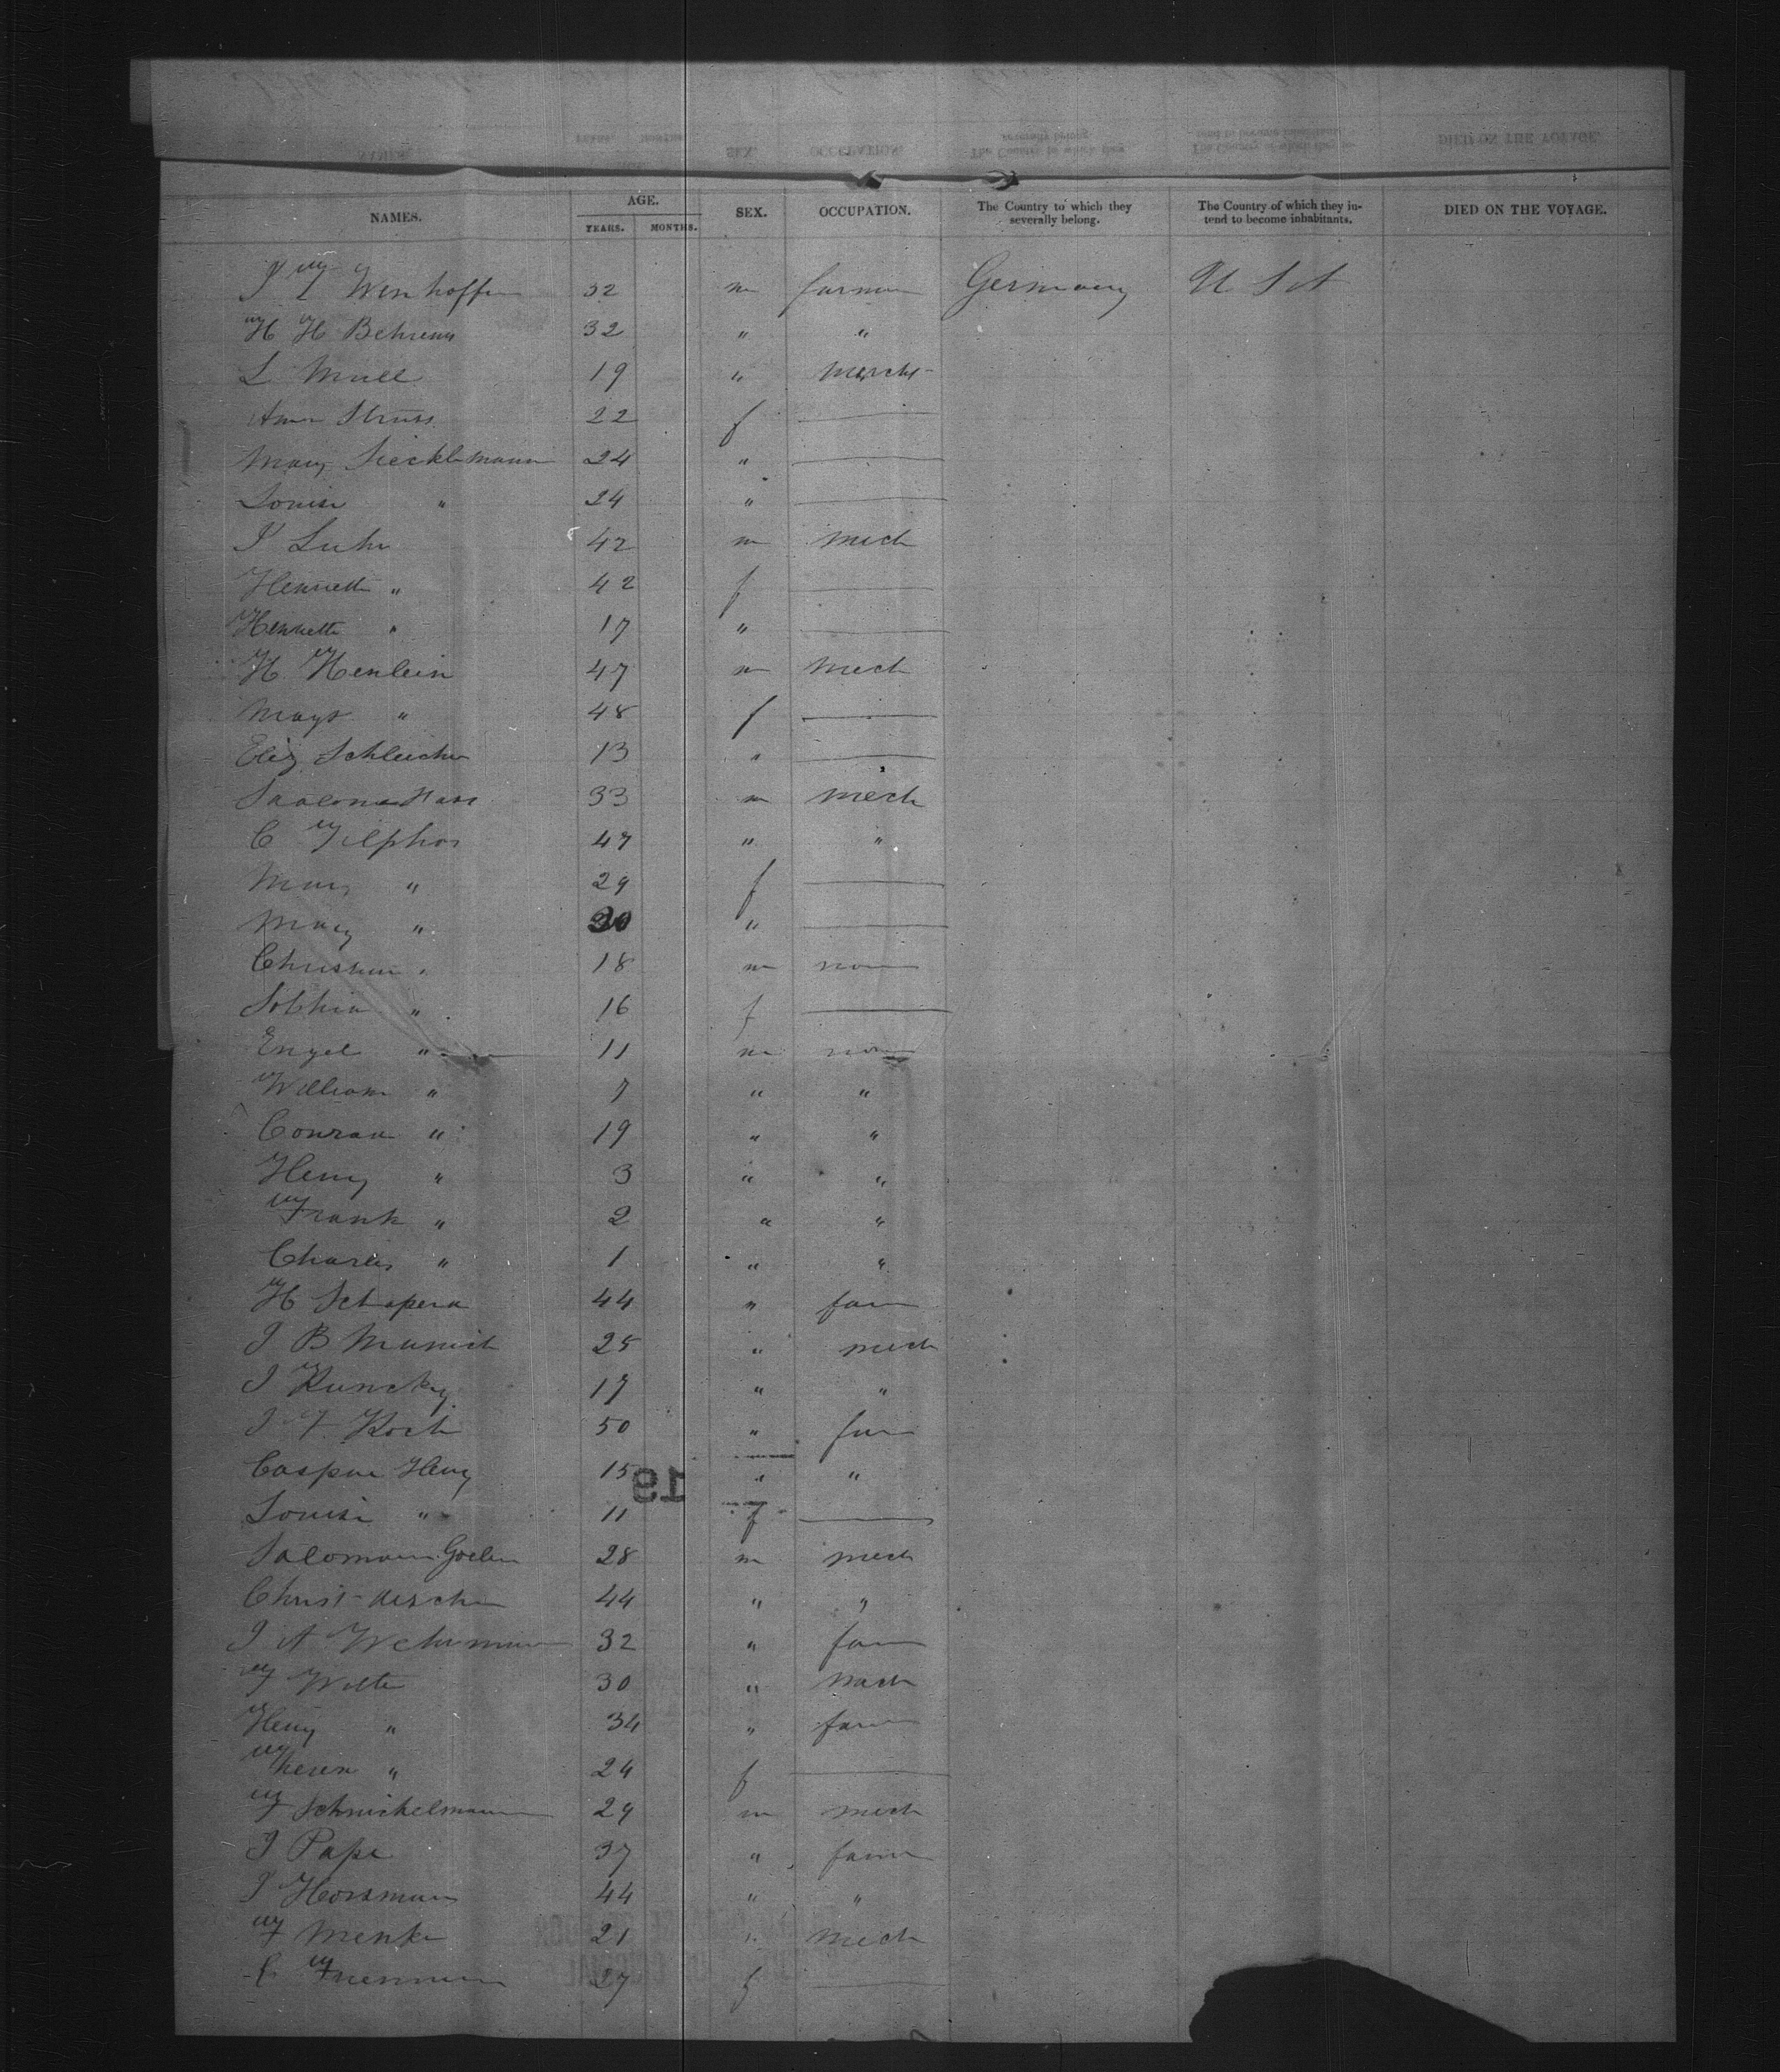 NAMES. AGE. YEARS. MONTHS. SEX. OCCUPATION. The Country to which they severally belong. The Country of which they intend to become inhabitants. DIED ON THE VOYAGE.
32 m farmer Germany U S A
H H Behrens 32 " "
L Mull 19 " Mercht
Struss 22 f
Mary Siecklemann 24 "
Louise " 24 "
J Luhr 42 m mech
Henriette " 42 f
Henriette " 17 "
H Henlein 47 m mech
" 48 f
Eliz Schleicher 13 "
33 m mech
C 47 " "
Mary " 29 f
Mary " 30 "
Christian " 18 m non
Sophia " 16 f
Engel " 11 m non
William " 7 " "
Conrad " 19 " "
Henry " 3 " "
Frank " 2 " "
Charles " 1 " "
H 44 " farm
J B Munich 25 " mech
J 17 " "
J F Koch 50 " far
Caspar Henry 15 " "
Louise " 11 f
28 m mech
Christ 44 " "
J A Wehrmann 32 " farm
F Witte 30 " mech
Henry " 34 " farm
" 24 f
F Schnickelmann 29 m mech
J Pape 37 " farm
J Horsmann 44 " "
F Menke 21 " mech
27 f
19